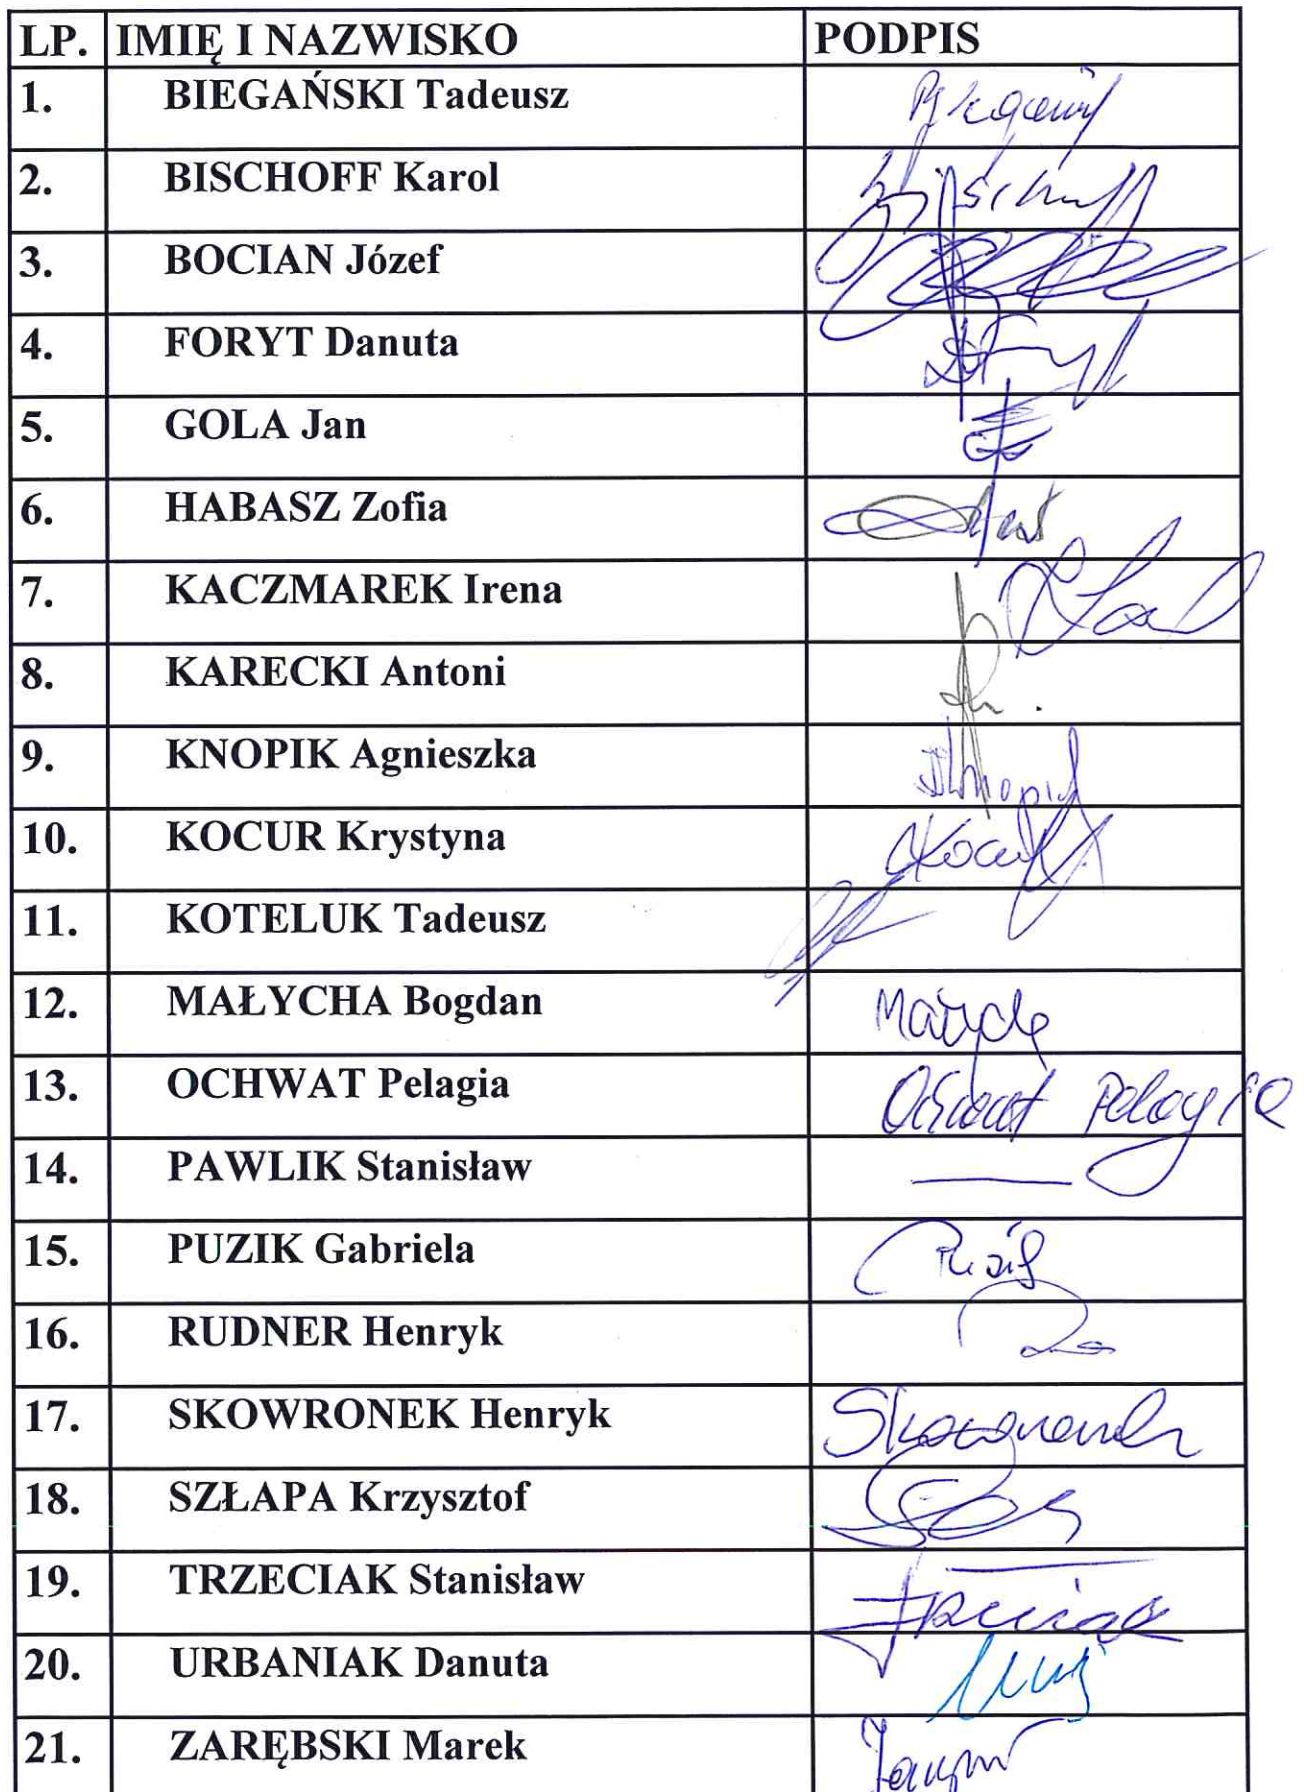 LP. IMIĘ I NAZWISKO PODPIS
1. BIEGAŃSKI Tadeusz
2. BISCHOFF Karol Bischoff
3. BOCIAN Józef
4. FORYT Danuta
5. GOLA Jan
6. HABASZ Zofia
7. KACZMAREK Irena
8. KARECKI Antoni
9. KNOPIK Agnieszka Knopik
10. KOCUR Krystyna Kocur
11. KOTELUK Tadeusz
12. MAŁYCHA Bogdan
13. OCHWAT Pelagia Ochwat Pelagia
14. PAWLIK Stanisław
15. PUZIK Gabriela Puzik
16. RUDNER Henryk
17. SKOWRONEK Henryk Skowronek
18. SZŁAPA Krzysztof
19. TRZECIAK Stanisław Trzeciak
20. URBANIAK Danuta
21. ZARĘBSKI Marek